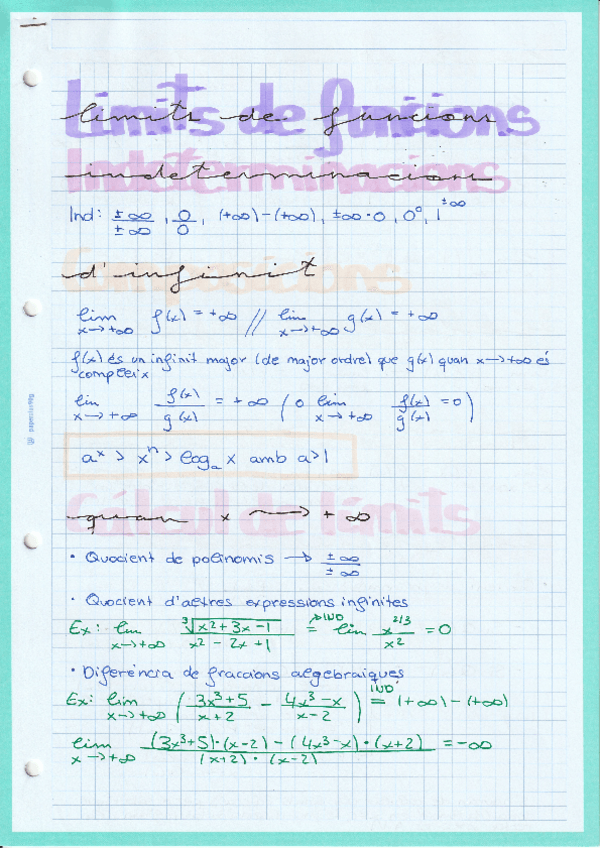 Límits de funcions
Indeterminacions
Ind: ±∞/±∞, 0/0, (+∞)-(+∞), ±∞·0, 0⁰, 1^±∞
Composicions d'infinit
lim x→+∞ f(x) = +∞ // lim x→+∞ g(x) = +∞
f(x) és un infinit major (de major ordre) que g(x) quan x→+∞ és
compleix
lim x→+∞ f(x)/g(x) = +∞ (o lim x→+∞ f(x)/g(x) = 0)
aˣ > xⁿ > logₐ x amb a>1
Càlcul de límits
quan x → +∞
· Quocient de polinomis → ±∞/±∞
· Quocient d'altres expressions infinites
Ex: lim x→+∞ ³√(x²+3x-1) / x²-2x+1 = IND = lim x^2/3 / x² = 0
· Diferència de fraccions algebraiques
Ex: lim x→+∞ (3x³+5/x+2 - 4x³-x/x-2) = IND (+∞)-(+∞)
lim x→+∞ (3x³+5)·(x-2)-(4x³-x)·(x+2) / (x+2)·(x-2) = -∞